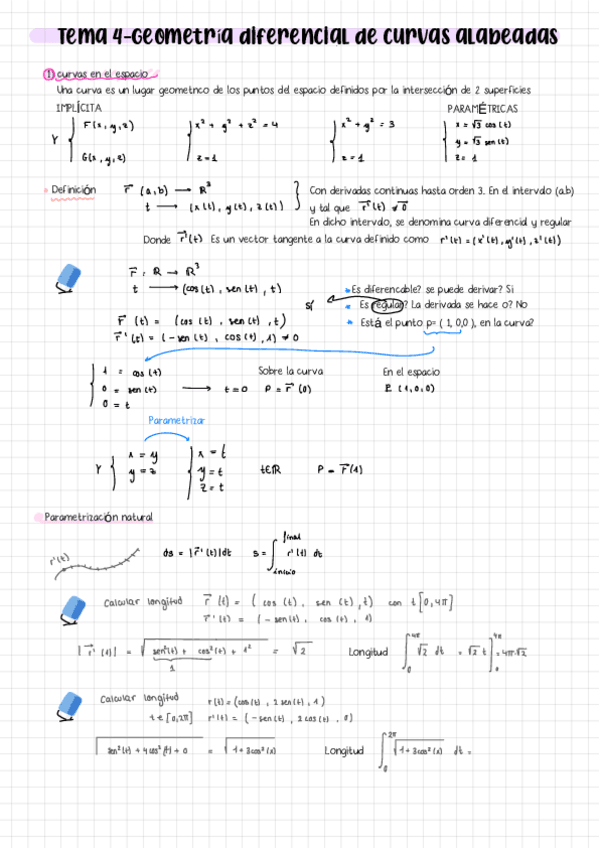 Tema 4-Geometría diferencial de curvas alabeadas
① curvas en el espacio
Una curva es un lugar geometrico de los puntos del espacio definidos por la intersección de 2 superficies
IMPLÍCITA PARAMÉTRICAS
γ { F(x, y, z) G(x, y, z) { x² + y² + z² = 4 z = 1 { x² + y² = 3 z = 1 { x = √3 cos(t) y = √3 sen(t) z = 1
Definición r⃗ (a,b) → R³ } Con derivadas continuas hasta orden 3. En el intervdo (a,b)
t → (x(t), y(t), z(t)) y tal que r⃗'(t) ≠ 0⃗
En dicho intervdo, se denomina curva diferencial y regular
Donde r⃗'(t) Es un vector tangente a la curva definido como r'(t) = (x'(t), y'(t), z'(t))
r⃗ : R → R³
t → (cos(t), sen(t), t) Es diferencable? se puede derivar? Si
Sí Es regular? La derivada se hace 0? No
r⃗ (t) = (cos(t), sen(t), t) Está el punto p= (1, 0,0), en la curva?
r⃗'(t) = (-sen(t), cos(t), 1) ≠ 0
{ 1 = cos(t) Sobre la curva En el espacio
0 = sen(t) → t=0 P = r⃗(0) P (1,0,0)
0 = t
Parametrizar
γ { x = y y = z { x = t y = t z = t t∈R P = r⃗(1)
Parametrización natural
r'(t) ds = |r⃗'(t)|dt s = ∫ final inicio r'(t) dt
Calcular longitud r⃗(t) = (cos(t), sen(t), t) con t[0,4π]
r⃗'(t) = (-sen(t), cos(t), 1)
|r⃗'(t)| = √(sen²(t) + cos²(t) + 1²) = √2 Longitud ∫₀^4π √2 dt = √2 t]₀^4π = 4π·√2
1
Calcular longitud r(t) = (cos(t), 2sen(t), 1)
t∈[0,2π] r'(t) = (-sen(t), 2cos(t), 0)
√(sen²(t) + 4cos²(t) + 0) = √(1+3cos²(x)) Longitud ∫₀^2π √(1+3cos²(x)) dt =